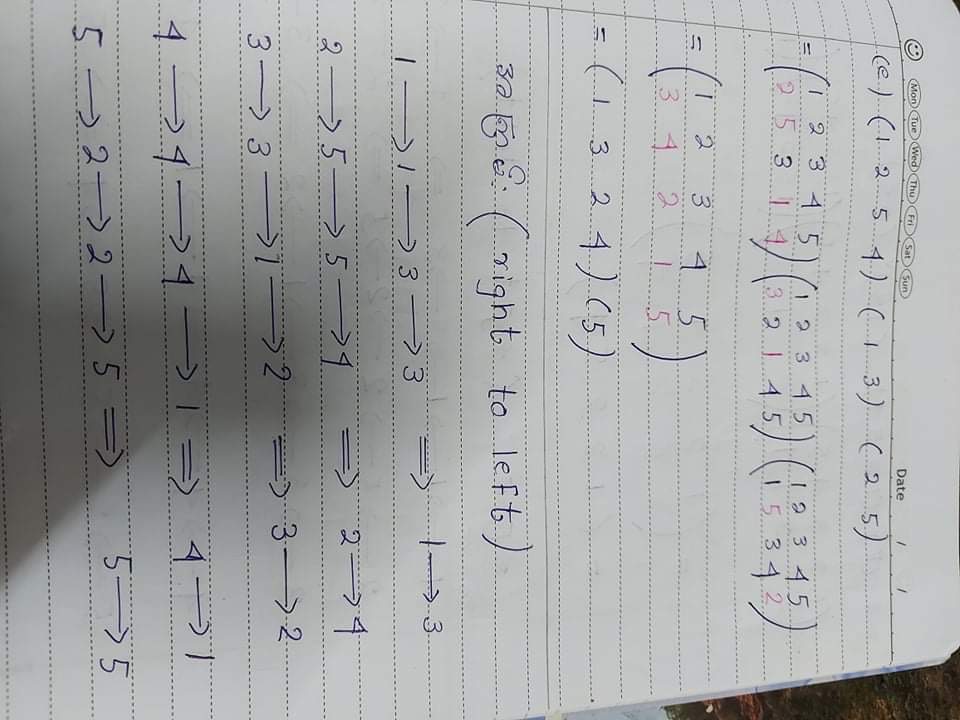 Mon Tue Wed Thu Fri Sat Sun Date / /
(e) (1 2 5 4) (1 3) (2 5)
= (1 2 3 4 5) (1 2 3 4 5) (1 2 3 4 5)
(2 5 3 1 4) (3 2 1 4 5) (1 5 3 4 2)
= (1 2 3 4 5)
(3 4 2 1 5)
= (1 3 2 4) (5)
(right to left)
1 → 1 → 3 → 3 ⇒ 1 → 3
2 → 5 → 5 → 4 ⇒ 2 → 4
3 → 3 → 1 → 2 ⇒ 3 → 2
4 → 4 → 4 → 1 ⇒ 4 → 1
5 → 2 → 2 → 5 ⇒ 5 → 5